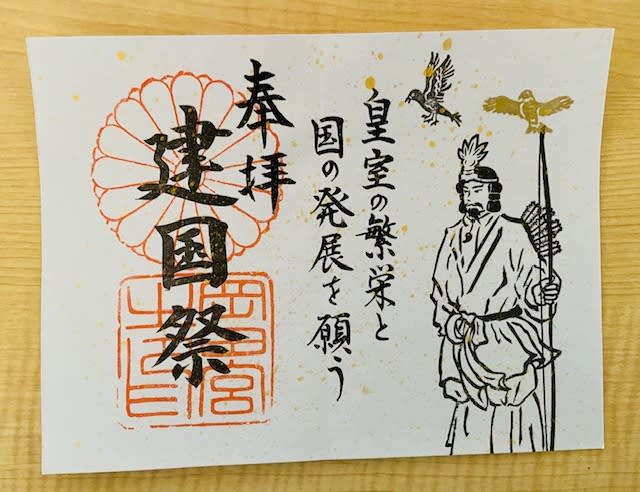 皇室の繁栄と
国の発展を願う
奉拝
建国祭